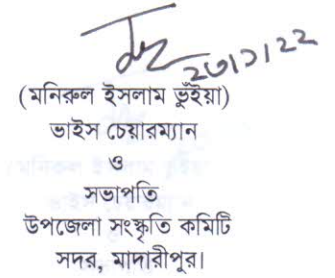 ২০/১/২২
(মনিরুল ইসলাম ভূঁইয়া)
ভাইস চেয়ারম্যান
ও
সভাপতি
উপজেলা সংস্কৃতি কমিটি
সদর, মাদারীপুর।